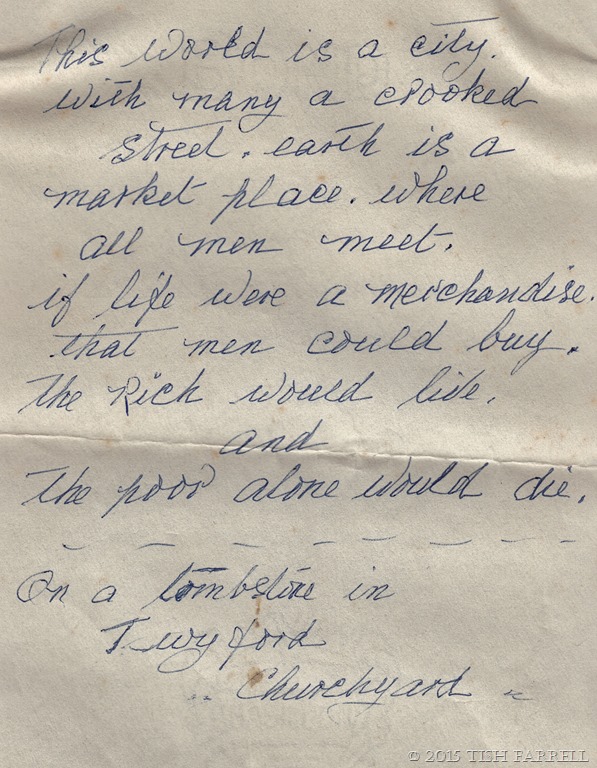 This World is a city.
with many a crooked
street. earth is a
market place. where
all men meet.
if life were a merchandise.
that men could buy.
The Rich would live.
and
The poor alone would die.
On a tombstone in
Twyford
" Churchyard "
© 2015 TISH FARRELL